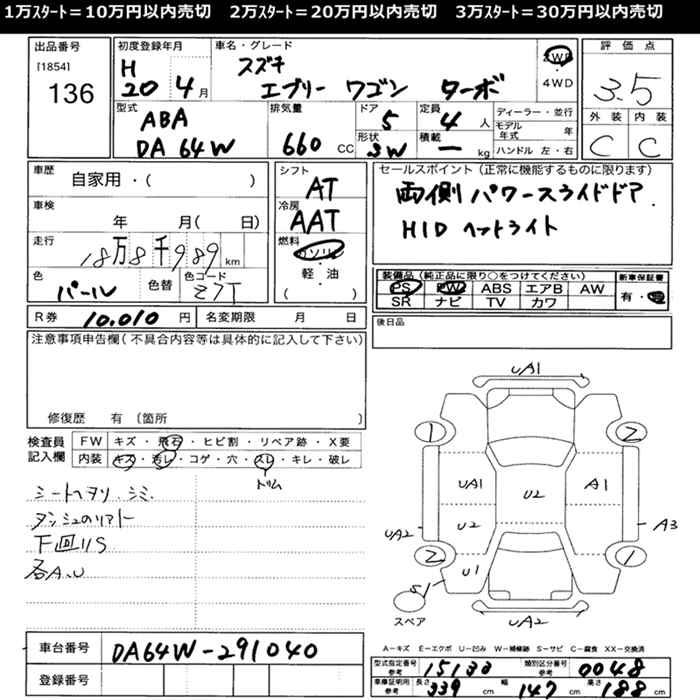 1万ｽﾀｰﾄ＝10万円以内売切　2万ｽﾀｰﾄ＝20万円以内売切　3万ｽﾀｰﾄ＝30万円以内売切
出品番号
[1854]
136
初度登録年月
H 20 4月
車名・グレード
スズキ
エブリー ワゴン ターボ
2WD
・
4WD
評価点
3.5
外装 内装
C C
型式
ABA
DA64W
排気量
660 CC
ドア
5
形状
SW
定員
4 人
積載
ー kg
ディーラー・並行
モデル年式 年
ハンドル 左・右
車歴
自家用・( )
車検
年 月( 日)
走行
18万8千989 km
色
パール
色替
色コード
Z7T
シフト
AT
冷房
AAT
燃料
ガソリン
・
軽・油
( )
セールスポイント(正常に機能するものに限ります)
両側パワースライドドア
HIDヘッドライト
装備品(純正品に限り○をつけてください)
PS PW ABS エアB AW
SR ナビ TV カワ
新車保証書
有・無
R券 10.010 円
名変期限 月 日
後日品
注意事項申告欄(不具合内容等は具体的に記入して下さい)
修復歴 有 〔箇所 〕
検査員記入欄
FW キズ・飛石・ヒビ割・リペア跡・X要
内装 キズ・汚レ・コゲ・穴・スレ・キレ・破レ
トリム
シートヘタリ.シミ
下回りS
各A.U
UA1
1
2
UA1
U2
A1
UA2
U2
A3
2
1
U1
S1
スペア
UA2
A－キズ E－エクボ U－凹み W－補修跡 S－サビ C－腐食 XX－交換済
車台番号
DA64W-291040
登録番号
型式指定番号
参考
15133
類別区分番号
参考
0048
車庫証明用
参考
長さ 339 cm
幅 147 cm
高さ 188 cm